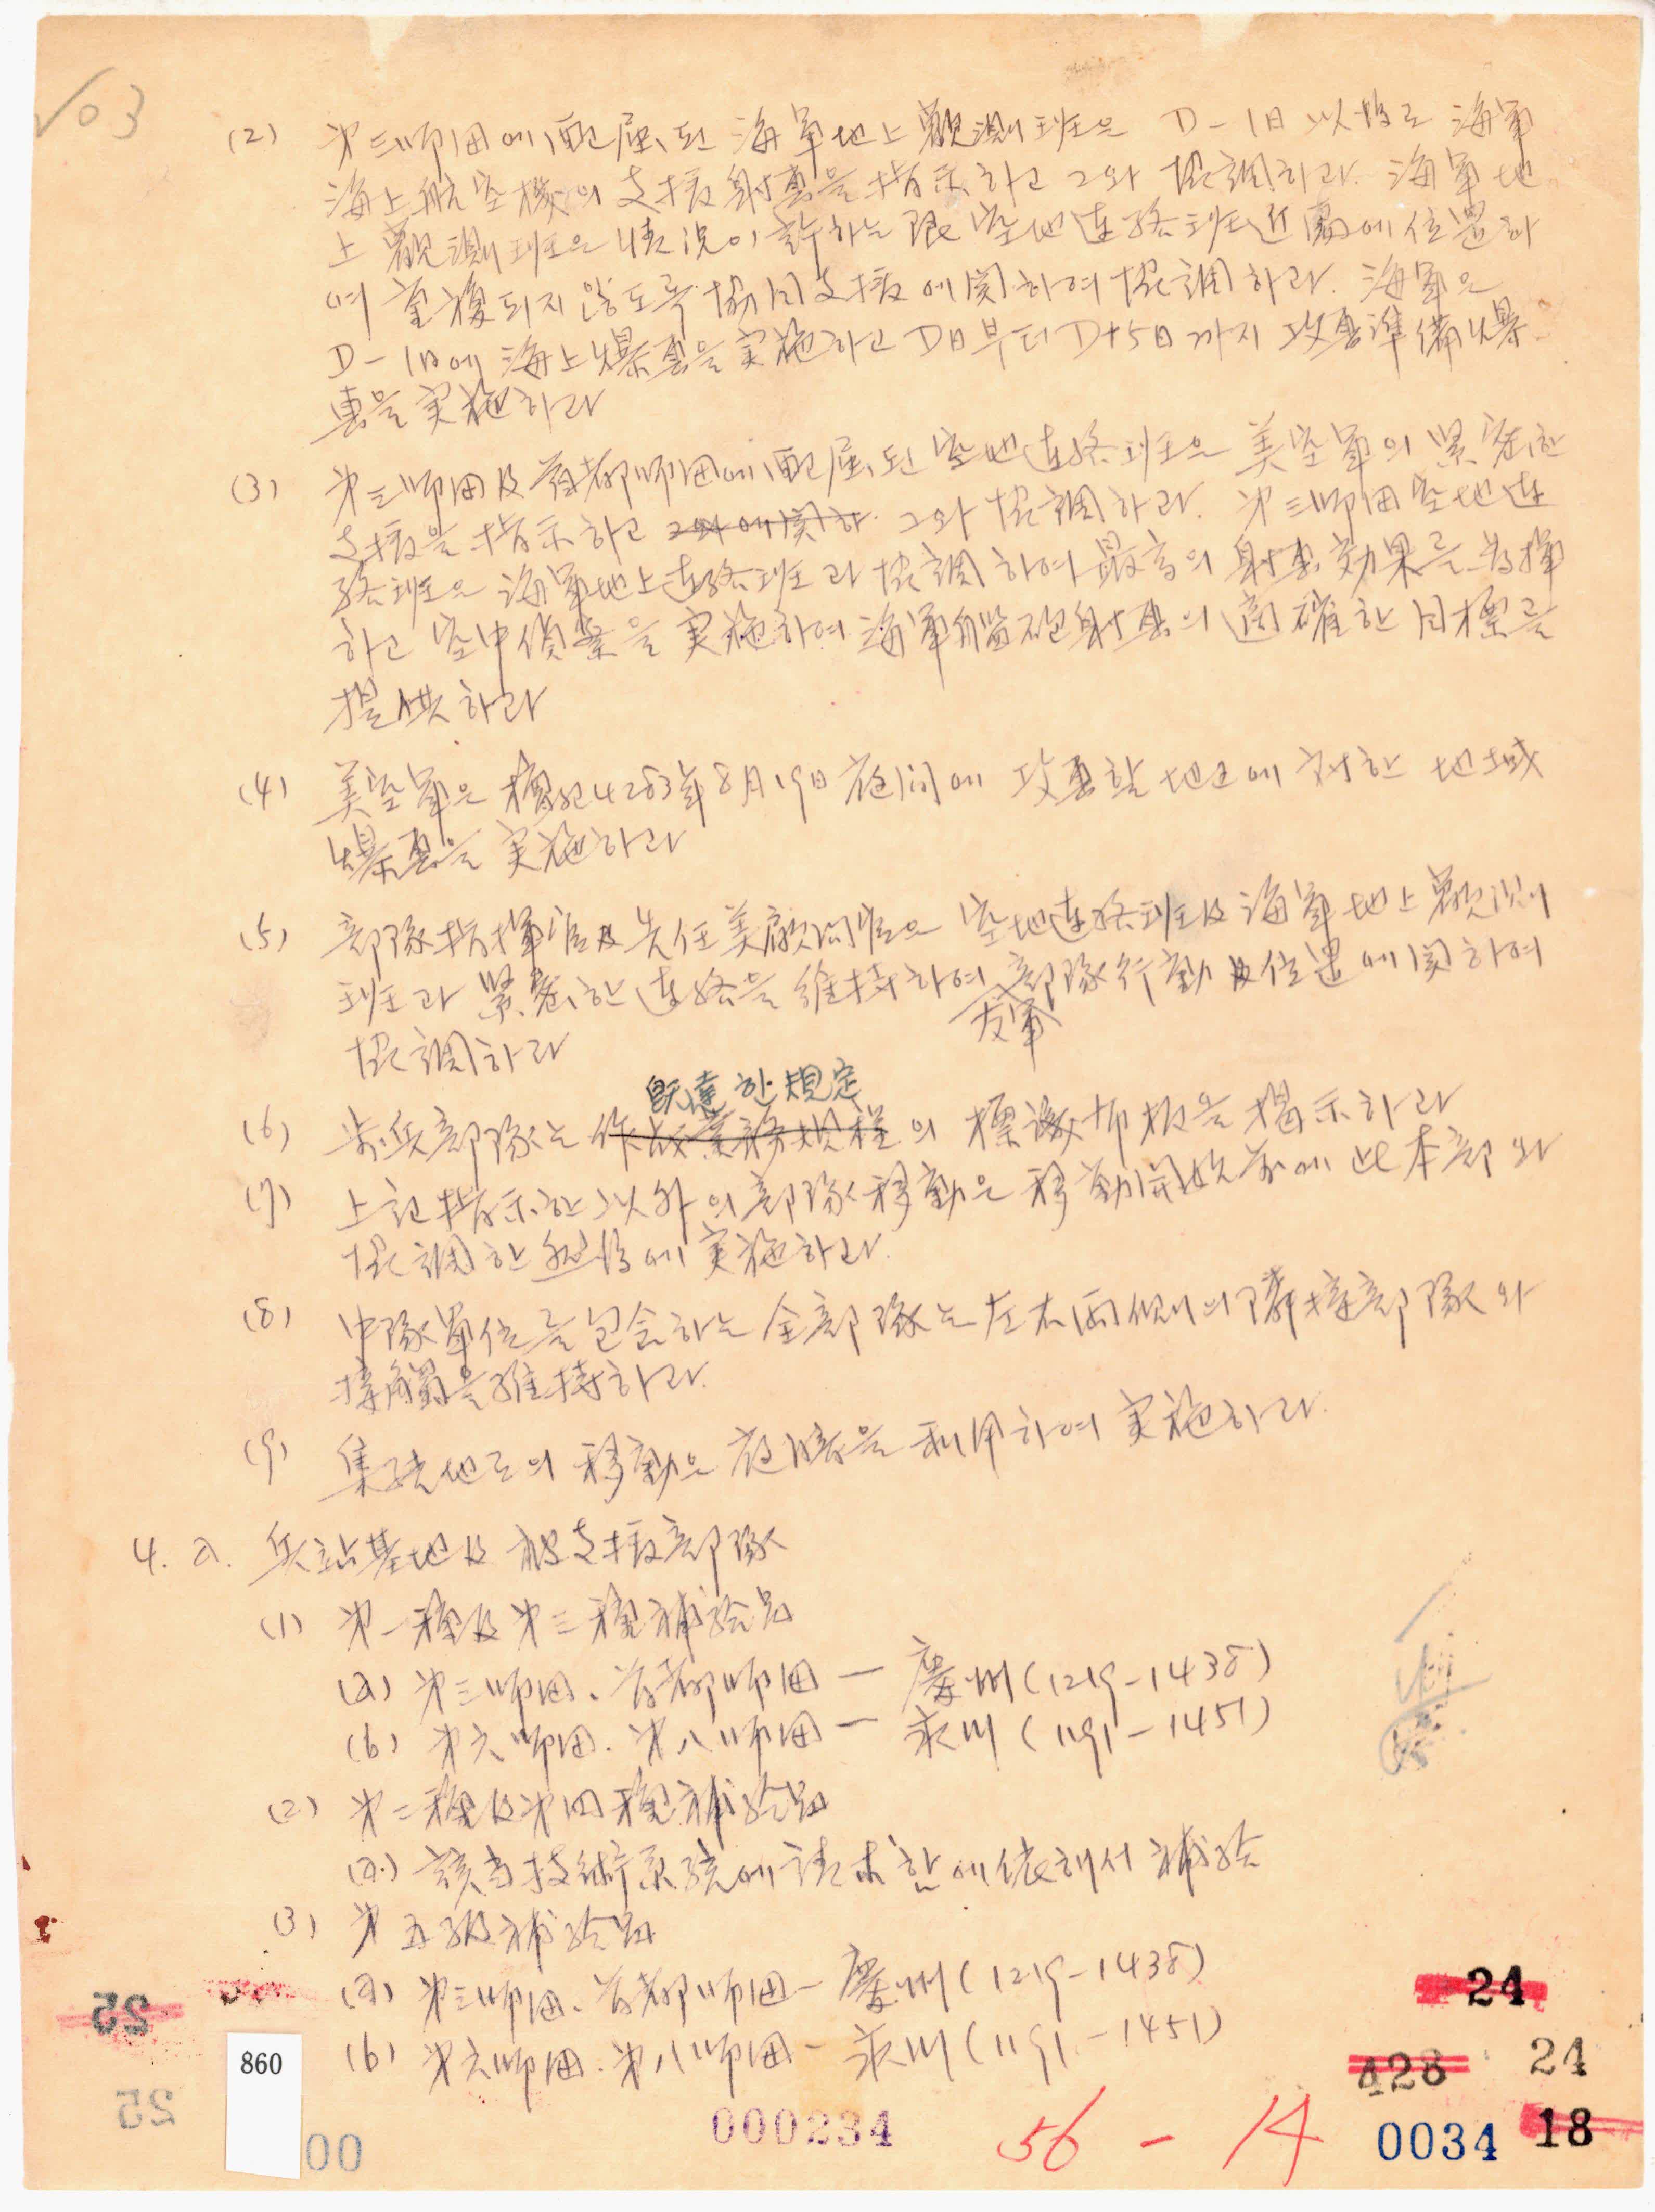 √03
(2) 第三師団에 配属된 海軍地上觀測班은 D-1日 以後로 海軍
海上航空機의 支援射擊을 指示하고 그와 協調하라. 海軍地
上觀測班은 情況이 許하는 限 空地連絡班 近處에 位置하
여 重複되지 않도록 協同支援에 関하여 協調하라. 海軍은
D-1日에 海上爆擊을 実施하고 D日부터 D+5日까지 攻擊準備爆
擊을 実施하라
(3) 第三師団及首都師団에 配属된 空地連絡班은 美空軍의 緊密한
支援을 指示하고 그와 協調하라. 第三師団空地連
絡班은 海軍地上連絡班과 協調하여 最高의 射擊効果를 発揮
하고 空中偵察을 実施하여 海軍艦砲射擊의 適確한 目標를
提供하라
(4) 美空軍은 檀紀4283年8月19日 夜間에 攻擊할 地区에 対한 地域
爆擊을 実施하라
(5) 部隊指揮官及先任美顧問官은 空地連絡班及海軍地上觀測
班과 緊密한 連絡을 維持하여 部隊行動及位置에 関하여
友軍
協調하라
既達한 規定
(6) 步兵部隊는 作戰業務規程의 標識布板을 揭示하라
(7) 上記指示한 以外의 部隊移動은 移動開始前에 此本部와
協調한 然後에 実施하라.
(8) 中隊單位를 包含하는 全部隊는 左右両側의 隣接部隊와
接觸을 維持하라.
(9) 集結地로의 移動은 夜暗을 利用하여 実施하라.
4. a. 兵站基地及被支援部隊
(1) 第一種及第三種補給品
(a) 第三師団、首都師団 — 慶州(1219-1438)
(b) 第六師団. 第八師団 — 永川(1191-1451)
(2) 第二種及第四種補給品
(a) 該当技術系統에 請求한 에 依해서 補給
(3) 第五級補給品
(a) 第三師団、首都師団 — 慶州(1219-1438)
(b) 第六師団. 第八師団 — 永川(1191-1451)
25
24
860
428
24
25
00
000234
56-14
0034
18